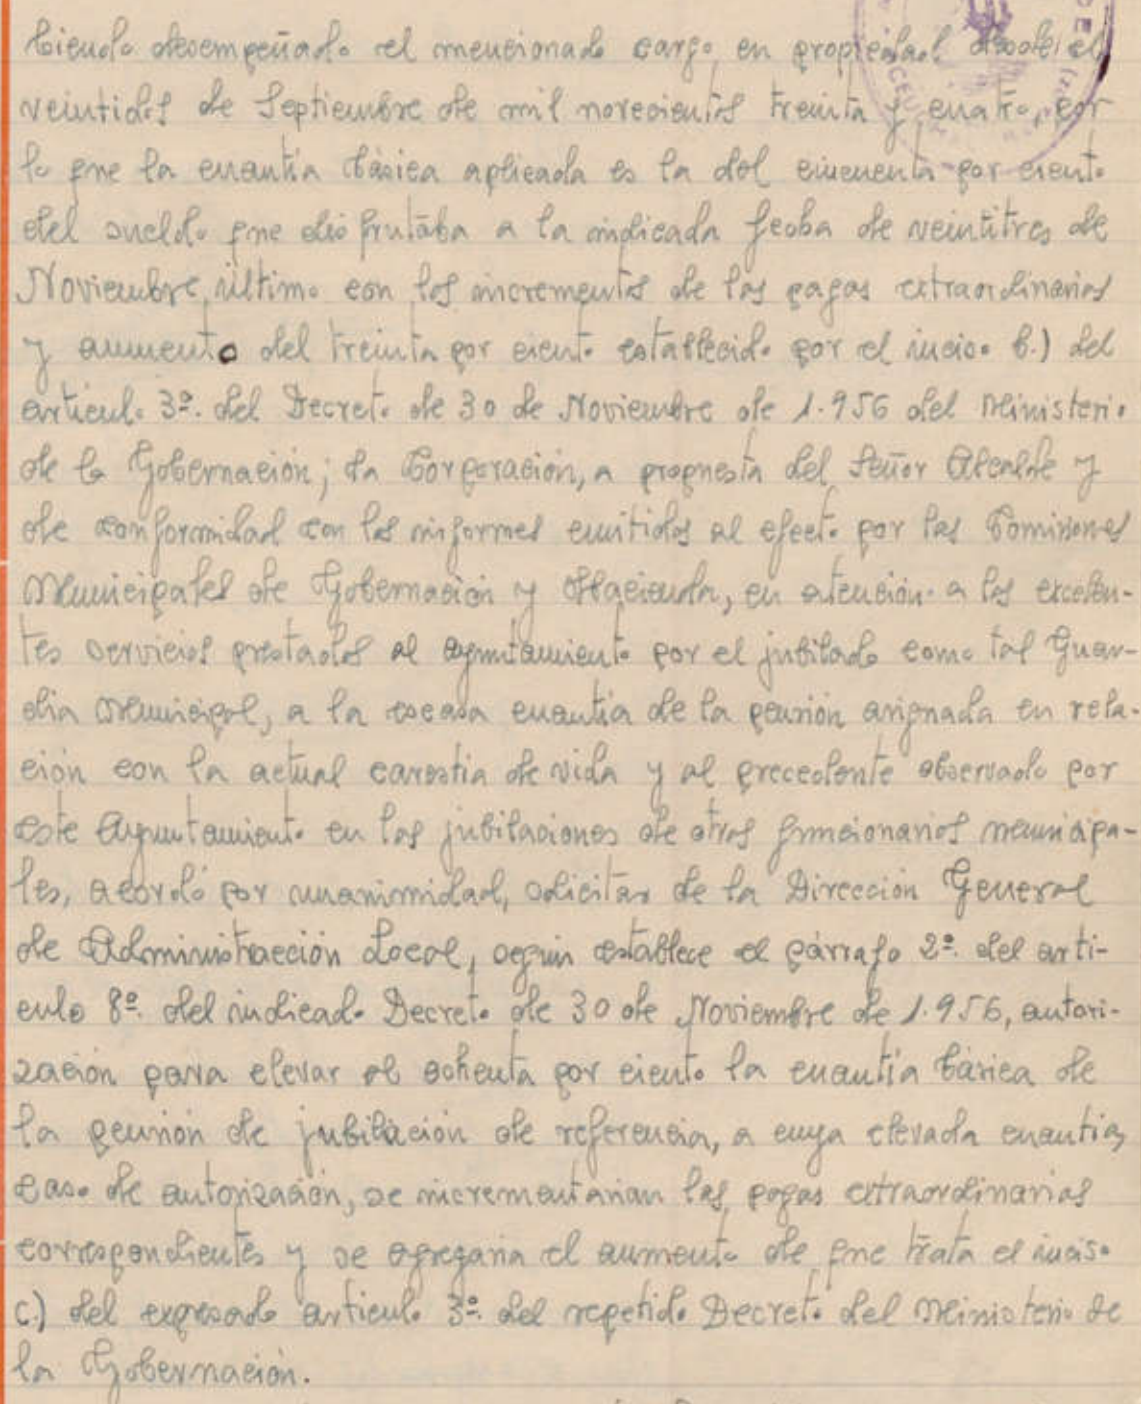 biendo desempeñado el mencionado cargo en propiedad desde el
veintidos de Septiembre de mil novecientos treinta y cuatro, por
lo que la cuantía básica aplicada es la del cincuenta por ciento
del sueldo que disfrutaba a la indicada fecha de veintitres de
Noviembre último con los incrementos de las pagas extraordinarias
y aumento del treinta por ciento establecido por el inciso b.) del
articulo 3º. del Decreto de 30 de Noviembre de 1.956 del Ministerio
de la Gobernación; la Corporación, a propuesta del Señor Alcalde y
de conformidad con los informes emitidos al efecto por las Comisiones
Municipales de Gobernación y Hacienda, en atención a los excelen-
tes servicios prestados al Ayuntamiento por el jubilado como tal Guar-
dia Municipal, a la escasa cuantia de la pensión asignada en rela-
ción con la actual carestia de vida y al precedente observado por
este Ayuntamiento en las jubilaciones de otros funcionarios municipa-
les, acordó por unanimidad, solicitar de la Dirección General
de Administracción Local, según establece el párrafo 2º. del arti-
culo 8º. del indicado Decreto de 30 de Noviembre de 1.956, autori-
zación para elevar al ochenta por ciento la cuantía básica de
la pensión de jubilación de referencia, a cuya elevada cuantia,
caso de autorización, se incrementarian las pagas extraordinarias
correspondientes y se agregaria el aumento de que trata el inciso
c.) del expresado articulo 3º. del repetido Decreto del Ministerio de
la Gobernación.